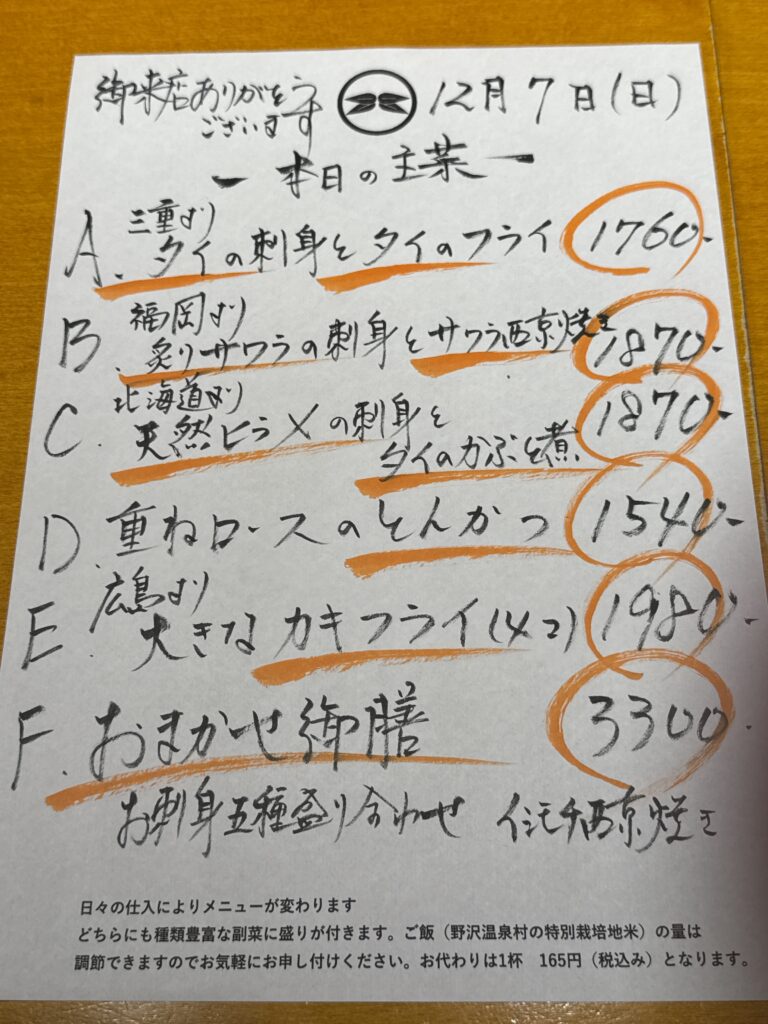 御来店ありがとう
ございます
12月7日(日)
ー 本日の主菜 ー
A. 三重より
タイの刺身とタイのフライ 1760-
B. 福岡より
炙りサワラの刺身とサワラ西京焼き 1870-
C. 北海道より
天然ヒラメの刺身と
タイのかぶと煮 1870-
D. 重ねロースのとんかつ 1540-
E. 広島より
大きなカキフライ(4コ) 1980-
F. おまかせ御膳 3300-
お刺身五種盛り合わせ イシモチ西京焼き
日々の仕入によりメニューが変わります
どちらにも種類豊富な副菜に盛りが付きます。ご飯（野沢温泉村の特別栽培地米）の量は
調節できますのでお気軽にお申し付けください。お代わりは1杯 165円（税込み）となります。